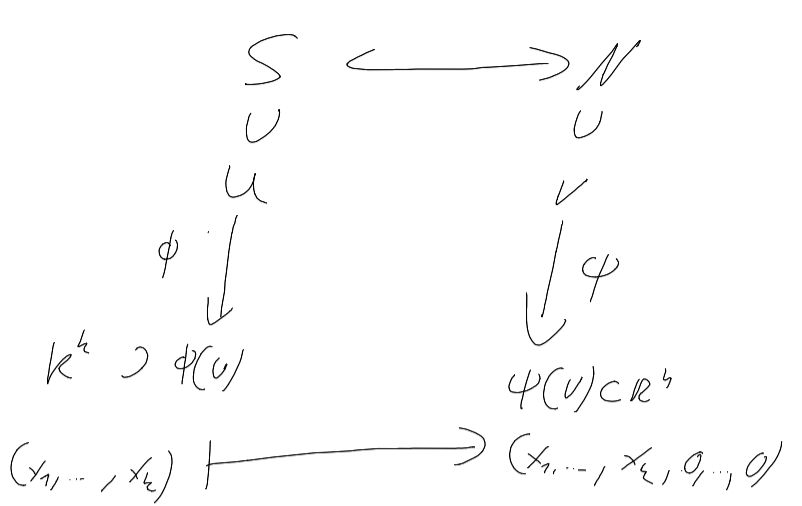 S ⟷ N
∪ ∪
U V
ϕ ↓ ↓ ψ
ℝᵏ ⊃ ϕ(U)
ψ(V) ⊂ ℝⁿ
(x₁, ..., xₖ) ↦ (x₁, ..., xₖ, 0, .., 0)